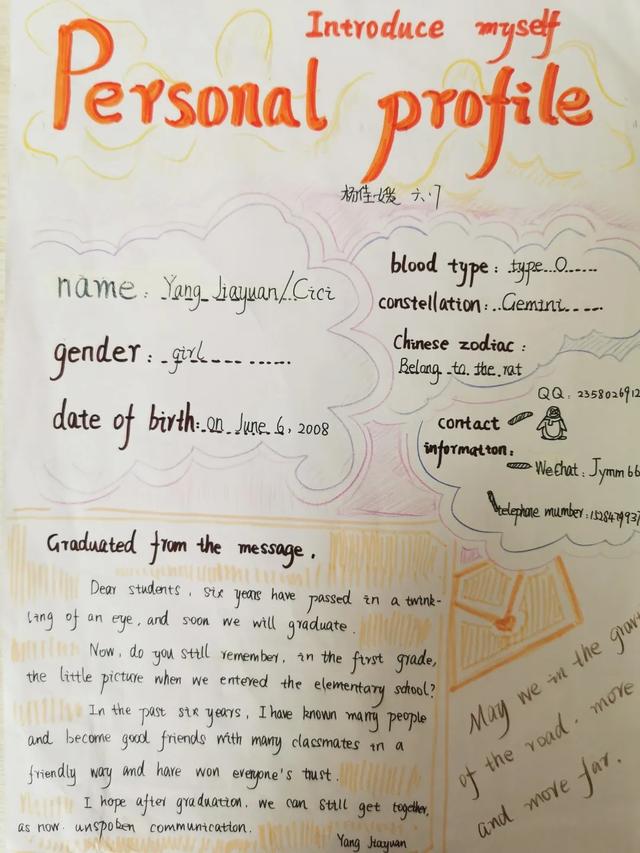 Introduce myself
Personal profile
杨佳媛 六.7
name: Yang Jiayuan/Cici
gender: girl
date of birth: on June 6, 2008
blood type: type O
constellation: Gemini
Chinese zodiac:
Belong to the rat
contact
information:
QQ: 2358026912
WeChat: Jymm66
telephone mumber: 1528479937
Graduated from the message.
Dear students, six years have passed in a twink-
ling of an eye, and soon we will graduate.
Now, do you still remember, in the first grade,
the little picture when we entered the elementary school?
In the past six years, I have known many people
and become good friends with many classmates in a
friendly way and have won everyone's trust.
I hope after graduation, we can still get together,
as now unspoken communication.
Yang Jiayuan
May we in the
of the road, more
and more far.